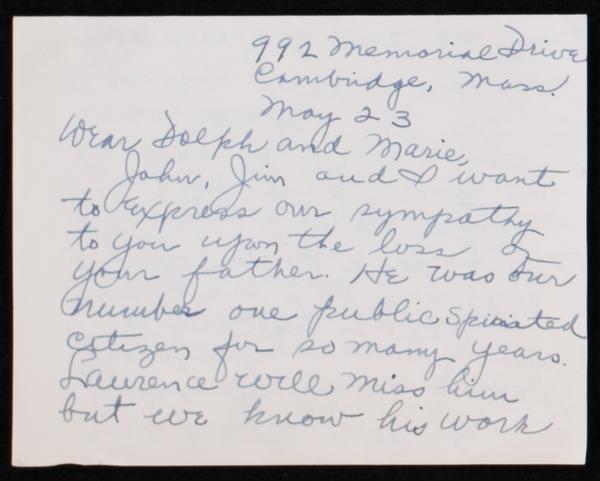 992 Memorial Drive
Cambridge, Mass.
May 23
Dear Dolph and Marie,
John, Jim and I want
to express our sympathy
to you upon the loss of
your father. He was our
number one public spirited
citizen for so many years.
Laurence will miss him
but we know his work